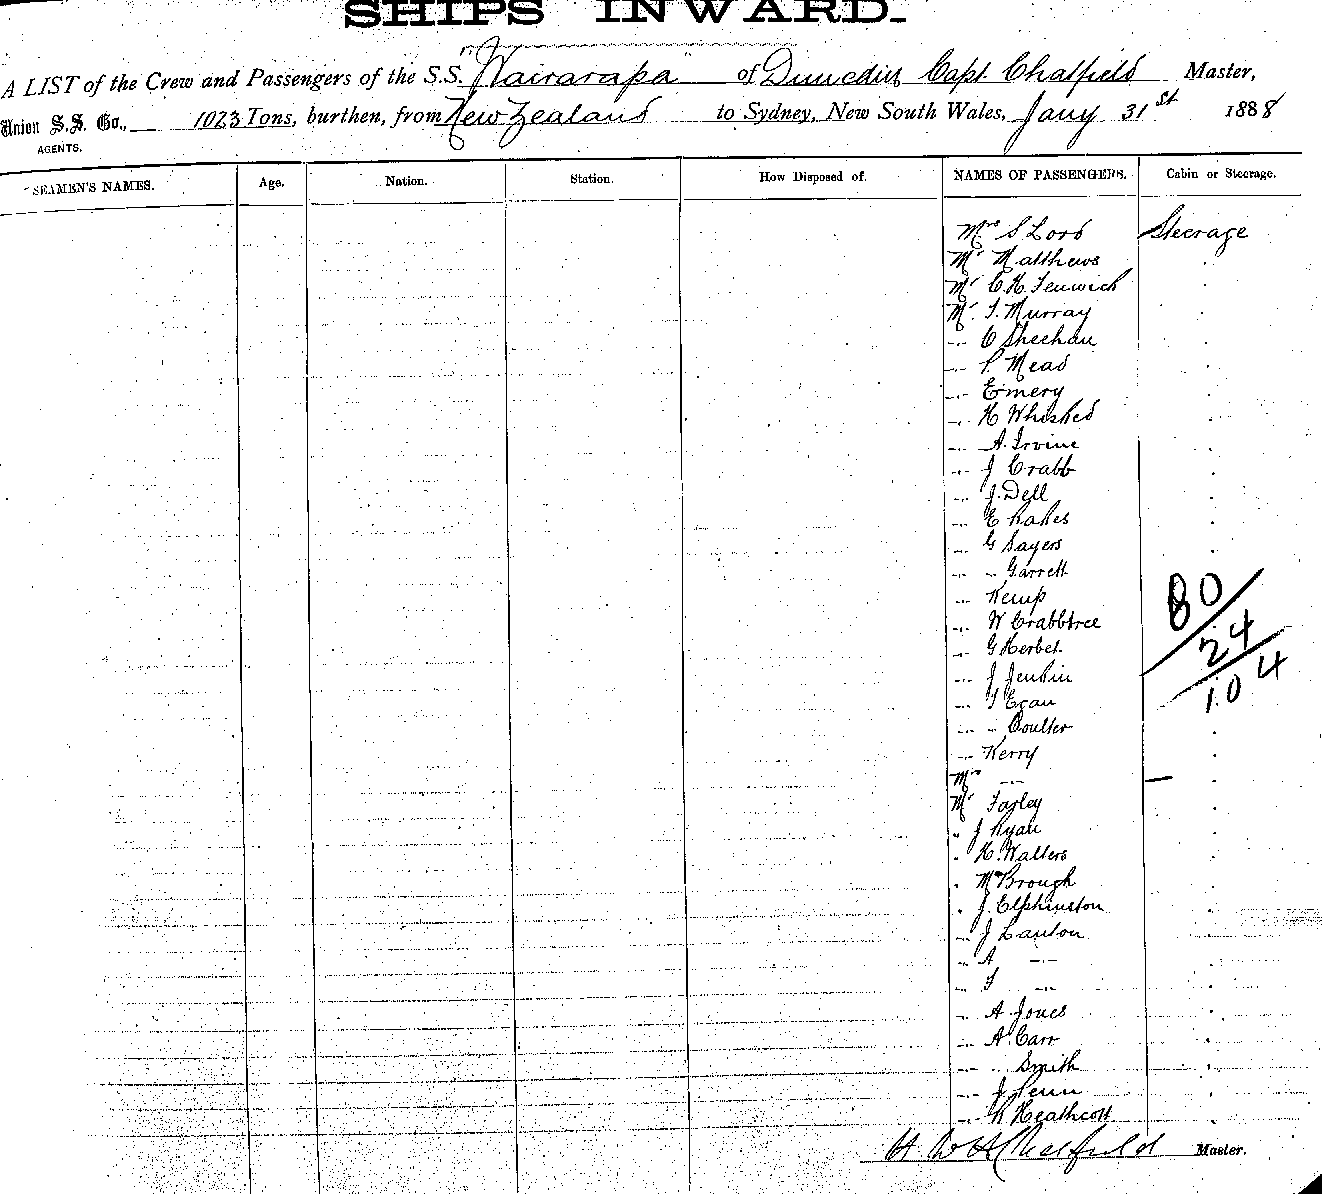 SHIPS INWARD.
A LIST of the Crew and Passengers of the S.S. Wairarapa of Dunedin, Capt. Chatfield Master,
Union S.S. Co., 1023 Tons, burthen, from New Zealand to Sydney, New South Wales, Jany 31st 1888
AGENTS.
SEAMEN'S NAMES. Age. Nation. Station. How Disposed of. NAMES OF PASSENGERS. Cabin or Steerage.
Mrs S Lord Steerage
Mr Matthews
Mr C.H. Fenwick
Mr. T. Murray
C Sheehan
P. Mead
Emery
H Whisked
A. Irvine
J Crabb
J. Dell
E
G Sayers
Garrett
Kemp
W Crabbtree
G Herbet
J Jenkin
T Egan
Coulter
Kerry
Mrs
Mr Farley
J Ryan
H. Walters
McBrough
J. Elphinston
J Lanton
A
T
A Jones
A. Carr
Smith
J Penn
R Heathcott
80
24
104
H W H Chatfield Master.